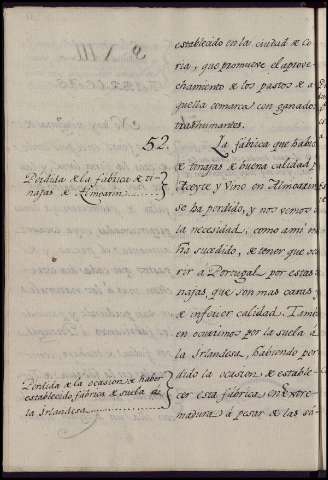 establecido en la ciudad de Co
ria, que promueve el aprove
chamiento de los pastos de a
quella comarca con ganados
trashumantes.
52.
La fabrica que habia
de tenajas de buena calidad p.
Aceyte y Vino en Almoarin
se ha perdido, y nos vemos
la necesidad, como a mi me
ha sucedido, de tener que ocu
rrir a Portugal por estas
najas que son mas caras y
de inferior calidad. Tam
en ocurrimos por la suela a
la Irlandesa, habiendo per
dido la ocasion de estable-
cer esta fabrica en Extre
madura a pesar de las sa-
Perdida de la fabrica de ti-
najas de Almoarin
Perdida de la ocasion de haber
establecido fabrica de suela a
la Irlandesa